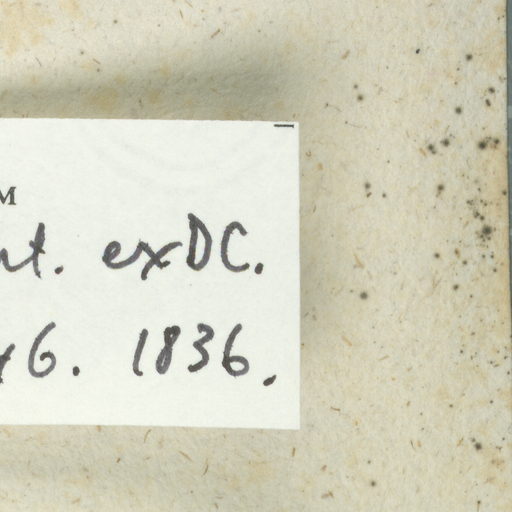 M
nt. ex DC.
46. 1836.